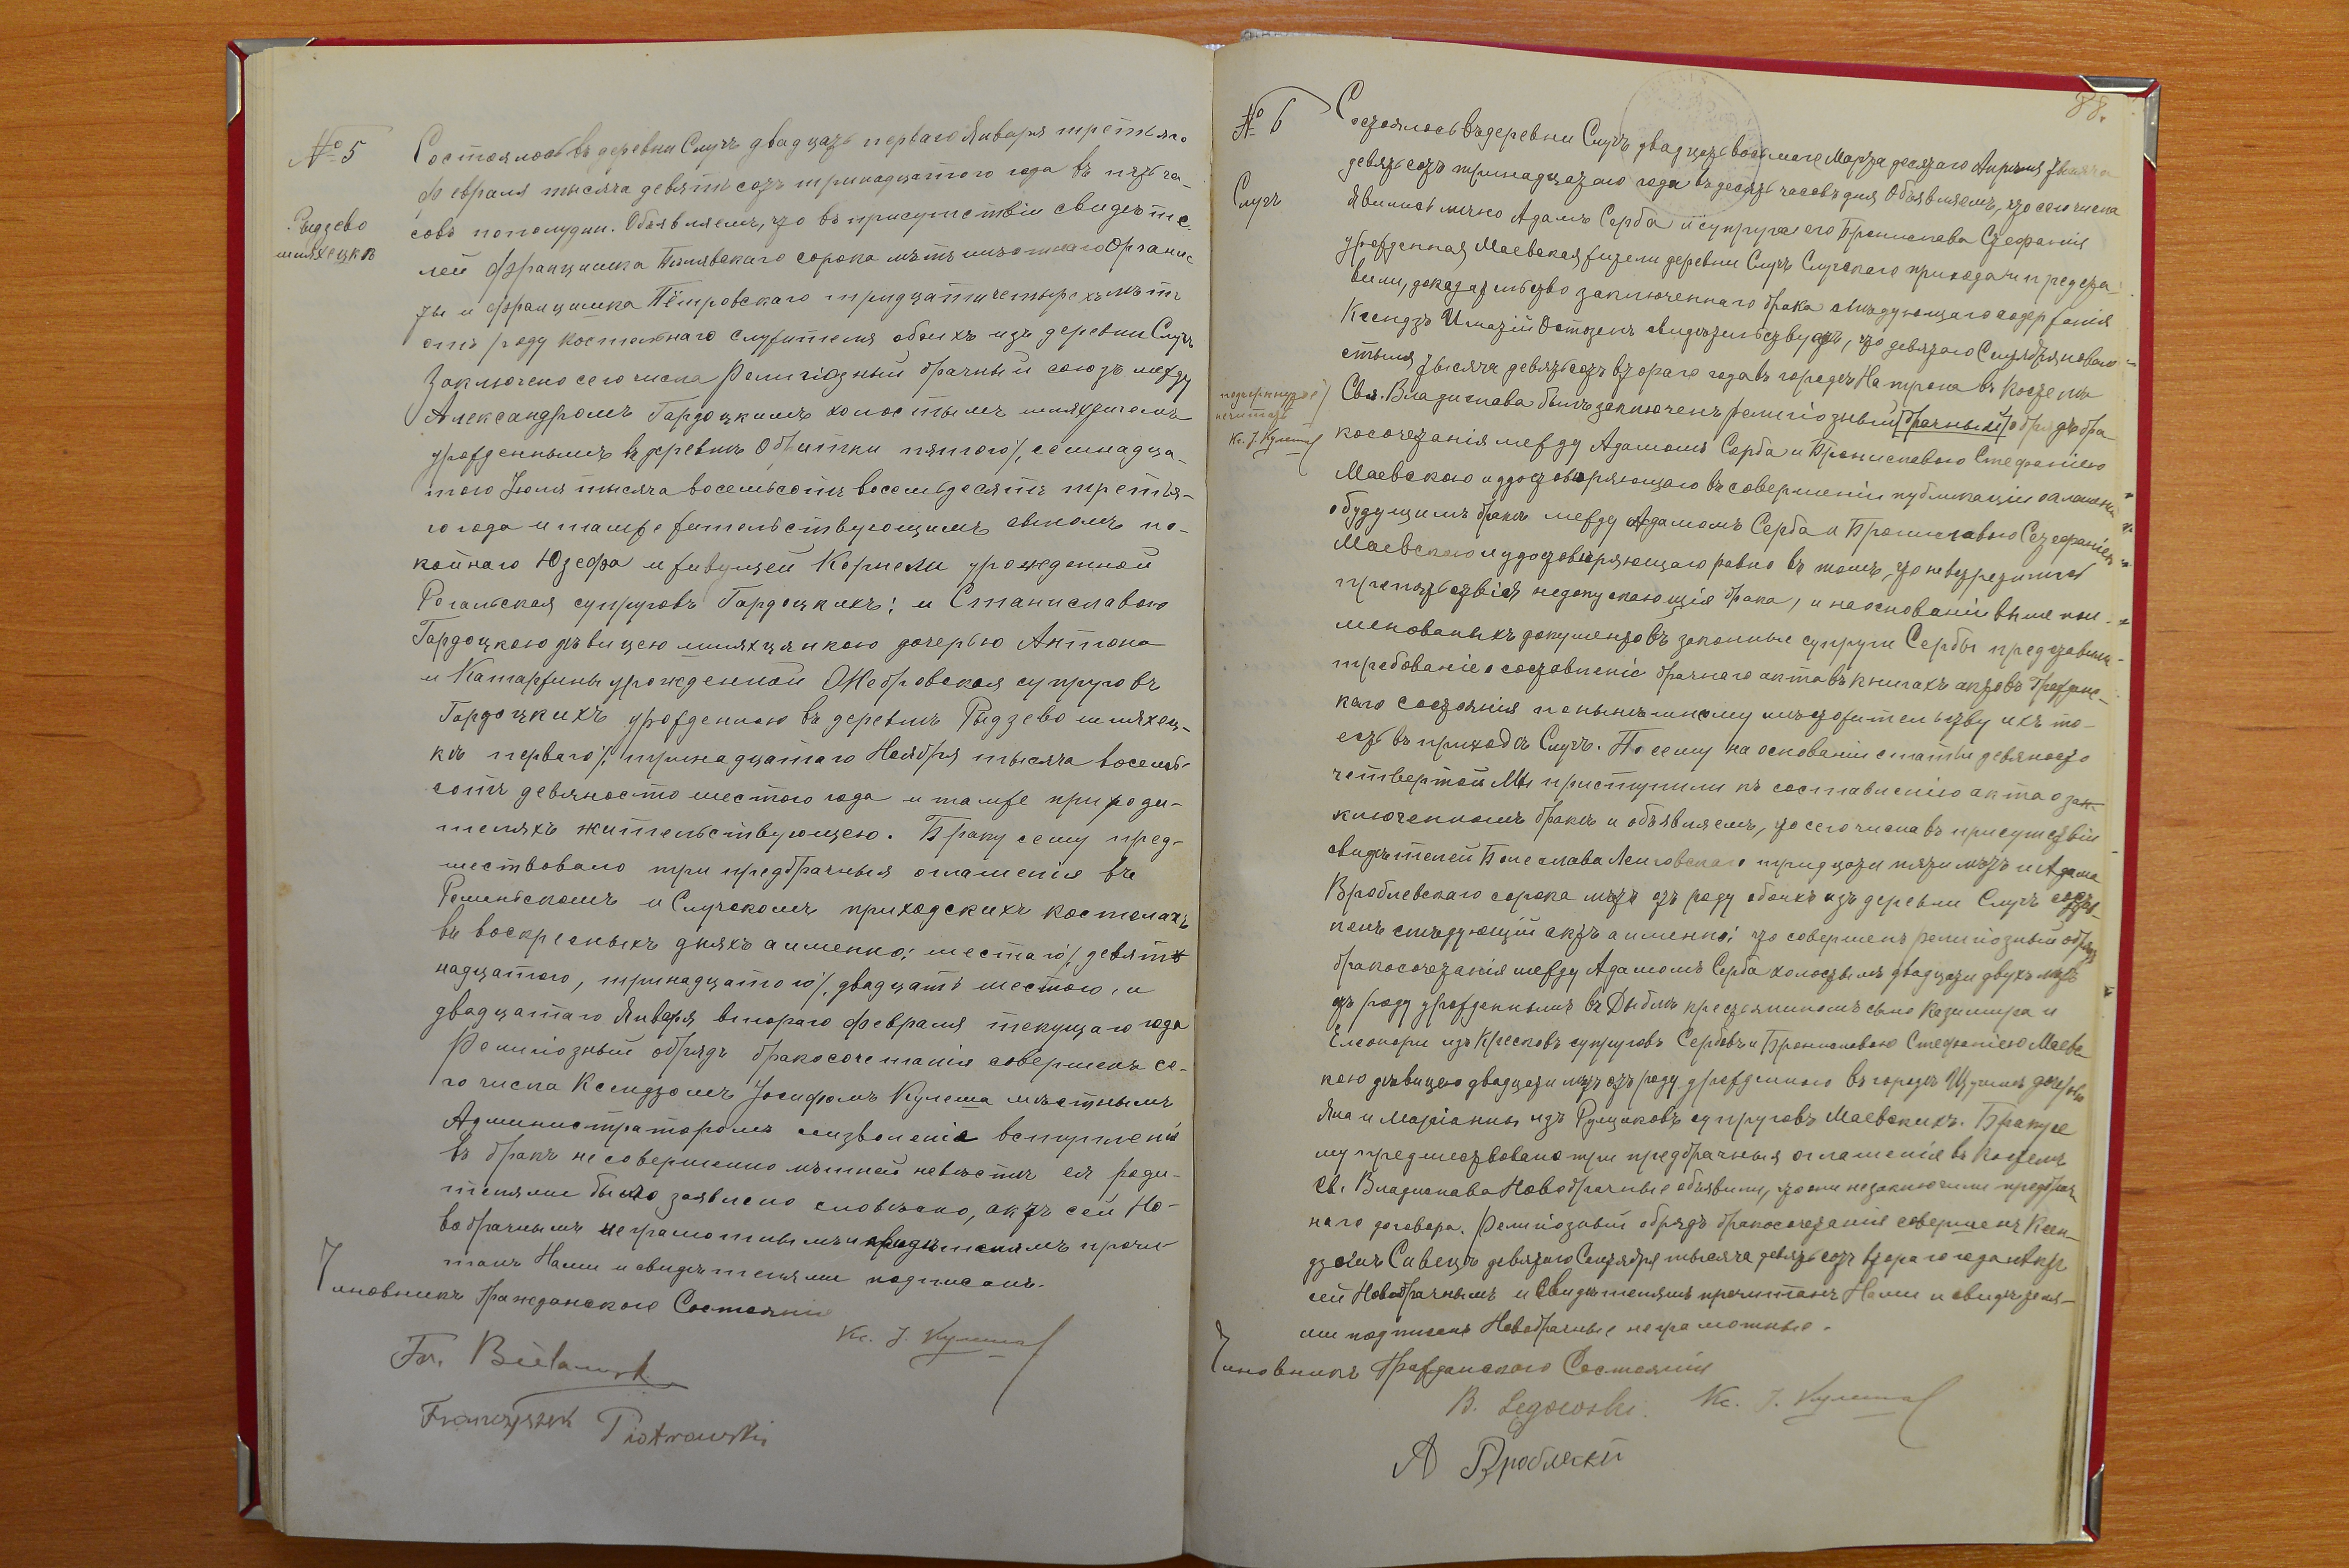 № 5
Состоялось въ деревни Случъ двадцать перваго Января третьяго
Февраля тысяча девятьсотъ тринадцатого года въ пять ча-
Рыдзево
шляхецкѣ
совъ пополудни. Объявляемъ, что въ присутствіи свидѣте-
лей Францишка Билявскаго сорока лѣтъ мѣстнаго Органис
ты и Францишка Пётровскаго тридцати четырехъ лѣтъ
отъ роду костельнаго служителя обоихъ изъ деревни Случъ
Заключено сего числа Религіозный брачный союзъ между
Александромъ Гардоцкимъ холостымъ шляхтичемъ
урожденнымъ въ деревнѣ Обрытки пятого/, семнадца-
того Іюля тысяча восемьсотъ восемьдесятъ третья-
го года и тамже жительствующимъ сыномъ по-
койнаго Юзефа и живущей Корнели урожденной
Рогальская супруговъ Гардоцкихъ; и Станиславою
Гардоцкою дѣвицею шляхцянкою дочерью Антона
и Катаржины урожденной Ожебровская супруговъ
Гардоцкихъ урожденною въ деревнѣ Рыдзево шляхец-
кѣ перваго/, тринадцатаго Ноября тысяча восемь-
сотъ девяносто шестого года и тамже при роди-
теляхъ жительствующею. Браку сему пред-
шествовало три предбрачныя оглашенія въ
Романскомъ и Случскомъ приходскихъ костелахъ
въ воскресныхъ дняхъ а именно: шестаго/, девят
надцатого, тринадцатого/, двадцать шестого, и
двадцатаго Января второго Февраля текущаго года
Религіозный обрядъ бракосочетанія совершенъ се-
го числа Ксендзомъ Іосифомъ Кулеша мѣстнымъ
Администраторомъ изволеніе вступленія
въ бракъ не совершенно лѣтней невѣстѣ ея роди-
телями было заявлено словесно, актъ сей Но-
вобрачнымъ неграмотнымъ и свидѣтелямъ прочи-
танъ Нами и свидѣтелями подписанъ.
Чиновникъ Гражданскаго Состоянія
Кс. І. Кулеша
Fr. Bielawski
Franciszek Piotrowski
88.
№ 6
Состоялось въ деревни Случъ двадцать восьмаго Марта десятаго Апрѣля тысяча
девятьсотъ тринадцатаго года въ десять часовъ дня Объявляемъ, что сего числа
Случъ
явились лично Адамъ Серба и супруга его Бронислава Стефанія
урожденная Маевская жители деревни Случъ Случскаго прихода и предста-
вили, доказательство заключеннаго брака слѣдующаго содержанія
Ксендзъ Игнацій Остшенъ свидѣтельствуетъ, что девятаго Сентября новаго
стыля тысяча девятьсотъ втораго года въ городѣ Натрона въ Костелѣ
подчеркнутое
нечитать
Кс. І. Кулеша
Свя. Владислава былъ заключенъ религіозный (брачный) обрядъ бра-
косочетанія между Адамомъ Серба и Брониславою Стефаніею
Маевскою и удостовѣряющаго въ совершеніи публикаціи оглашеній
о будущимъ бракѣ между Адамомъ Серба и Брониславою Стефаніею
Маевскою и удостовѣряющаго равно въ томъ, что невстрѣтилось
препятствія недопускающія брака, и на основаніи выше пои-
менованыхъ документовъ законные супруги Сербы представили
требованіе о составленіе брачнаго акта въ книгахъ актовъ Граждан-
каго состоянія по нынѣшнему мѣстожительству ихъ то-
есть въ приходѣ Случъ. По сему на основаніи статьи девяносто
четвертой Мы приступили къ составленію акта о зак-
люченномъ бракѣ и объявляемъ, что сего числа въ присутствіи
свидѣтелей Болеслава Леговскаго тридцати пяти лѣтъ и Адама
Вроблевскаго сорока лѣтъ отъ роду обоихъ изъ деревни Случъ состав-
ленъ слѣдующій актъ а именно: что совершенъ религіозный обрядъ
бракосочетанія между Адамомъ Серба холостымъ двадцати двухъ лѣтъ
отъ роду урожденнымъ въ Дыблѣ крестьяниномъ сына Казимира и
Елеоноры изъ Кресковъ супруговъ Сербовъ и Брониславою Стефаніею Маевс
кою дѣвицею двадцати лѣтъ отъ роду урожденною въ городѣ Щучинѣ дочерью
Яна и Маріанны изъ Рущаковъ супруговъ Маевскихъ. Браку се
му предшествовало три предбрачныя оглашенія въ Костелѣ
Св. Владислава Новобрачные объявили, что они незаключили предбрач
наго договора. Религіозный обрядъ бракосочетанія совершенъ Ксен-
дзомъ Сивецъ девятаго Сентября тысяча девятьсотъ втораго года Актъ
сей Новобрачнымъ и Свидѣтелямъ прочитанъ Нами и свидѣтеля-
ми подписанъ Новобрачные неграмотные.
Чиновникъ Гражданскаго Состоянія
B. Legowski. Кс. І. Кулеша
А Вроблескй